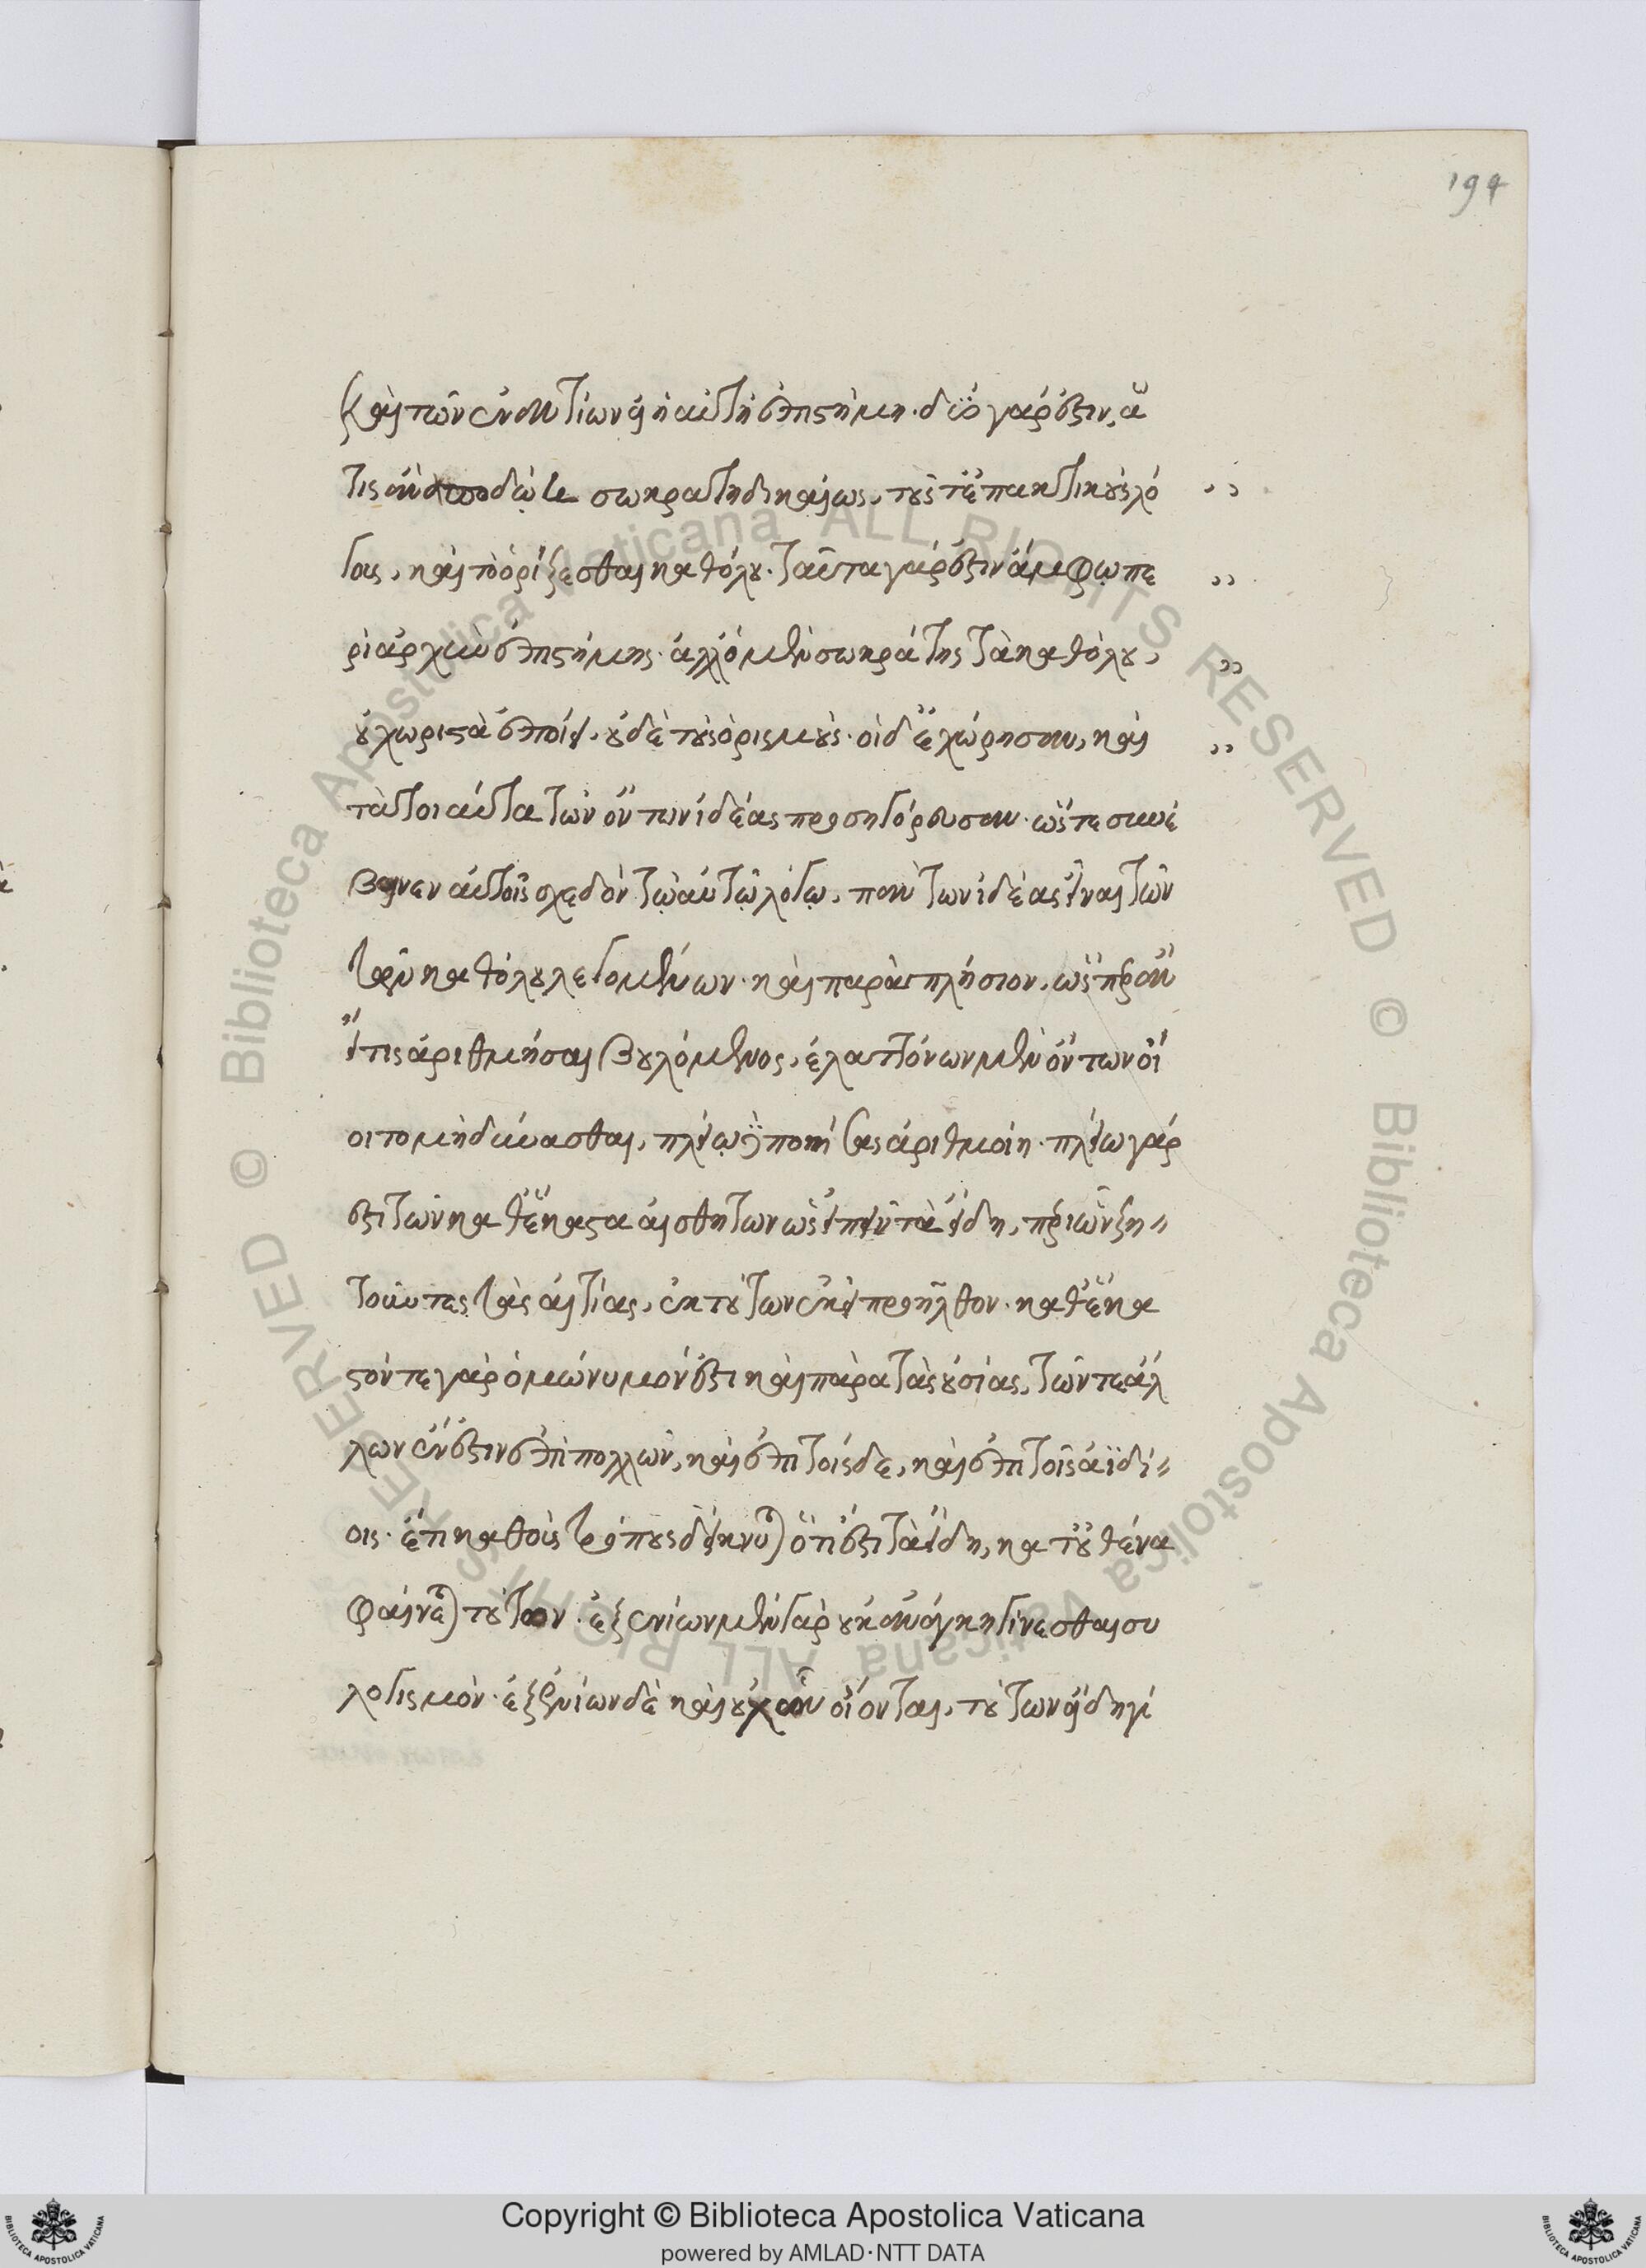 194
καὶ τῶν ἐναντίων εἰ ἡ αὐτὴ ἐπιστήμη· δύο γάρ ἐστιν, ἅ
τις ἂν ἀποδώῃ σωκράτη δικαίως, τούς τ' ἐπακτικοὺς λό
γους, καὶ τὸ ὁρίζεσθαι καθόλου· ταῦτα γάρ ἐστιν ἄμφω πε
ρὶ ἀρχὴν ἐπιστήμης· ἀλλ' ὁ μὲν σωκράτης τὰ καθόλου,
οὐ χωριστὰ ἐποίει, οὐδὲ τοὺς ὁρισμούς· οἱ δ' ἐχώρησαν, καὶ
τὰ τοιαῦτα τῶν ὄντων ἰδέας προσηγόρευσαν· ὥστε συνέ
βαινεν αὐτοῖς σχεδὸν τῷ αὐτῷ λόγῳ, πάντων ἰδέας εἶναι τῶν
τῶν καθόλου λεγομένων· καὶ παραπλήσιον, ὥσπερ ἂν
εἴ τις ἀριθμήσαι βουλόμενος, ἐλαττόνων μὲν ὄντων οἴ
οιτο μὴ δύνασθαι, πλείω δὲ ποιήσας ἀριθμοίη· πλείω γάρ
ἐστι τῶν καθ' ἕκαστα αἰσθητῶν ὡς εἰπεῖν τὰ εἴδη, περὶ ὧν ζη〃
τοῦντες τὰς αἰτίας, ἐκ τούτων ἐκεῖ προῆλθον· καθ' ἕκα
στόν τε γὰρ ὁμώνυμόν ἐστι καὶ παρὰ τὰς οὐσίας, τῶν τε ἄλ
λων ἕν ἐστιν ἐπὶ πολλῶν, καὶ ἐπὶ τοῖςδε, καὶ ἐπὶ τοῖς ἀϊδί〃
οις· ἔτι καθ' οὓς τρόπους δείκνυται ὅτι ἔστι τὰ εἴδη, κατ' οὐθένα
φαίνεται τούτων· ἐξ ἐνίων μὲν γὰρ οὐκ ἀνάγκη γίνεσθαι συ
λογισμόν· ἐξ ἐνίων δὲ καὶ οὐχ ὧν οἴονται, τούτων εἴδη γί
Copyright © Biblioteca Apostolica Vaticana
powered by AMLAD·NTT DATA